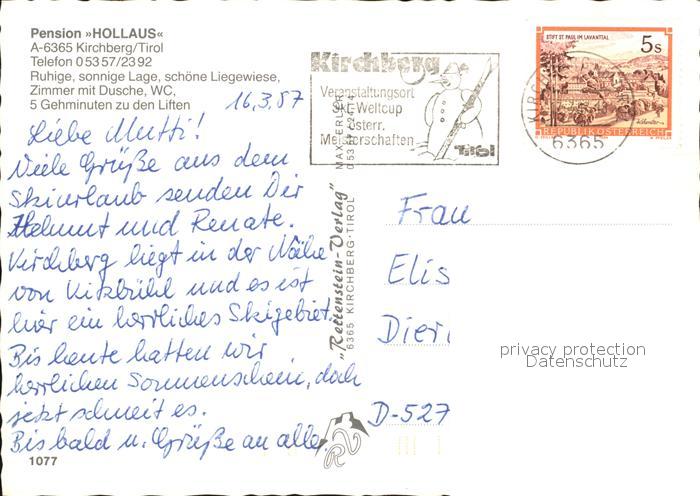 Pension »HOLLAUS«
A-6365 Kirchberg/Tirol
Telefon 05357/2392
Ruhige, sonnige Lage, schöne Liegewiese,
Zimmer mit Dusche, WC,
5 Gehminuten zu den Liften
16.3.87
Liebe Mutti!
Viele Grüße aus dem
Skiurlaub senden Dir
Helmut und Renate.
Kirchberg liegt in der Nähe
von Kitzbühl und es ist
hier ein herrliches Skigebiet.
Bis heute hatten wir
herrlichen Sonnenschein, doch
jetzt schneit es.
Bis bald u. Grüße an alle.
1077
Kirchberg
Veranstaltungsort
Ski-Weltcup
Österr.
Meisterschaften
Tirol
STIFT ST. PAUL IM LAVANTTAL
5s
REPUBLIK ÖSTERREICH
6365
"Reitenstein-Verlag"
6365 KIRCHBERG-TIROL
Frau
Elis
Dier
D-527
privacy protection
Datenschutz